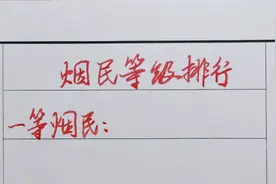 烟民等级排行
一等烟民：